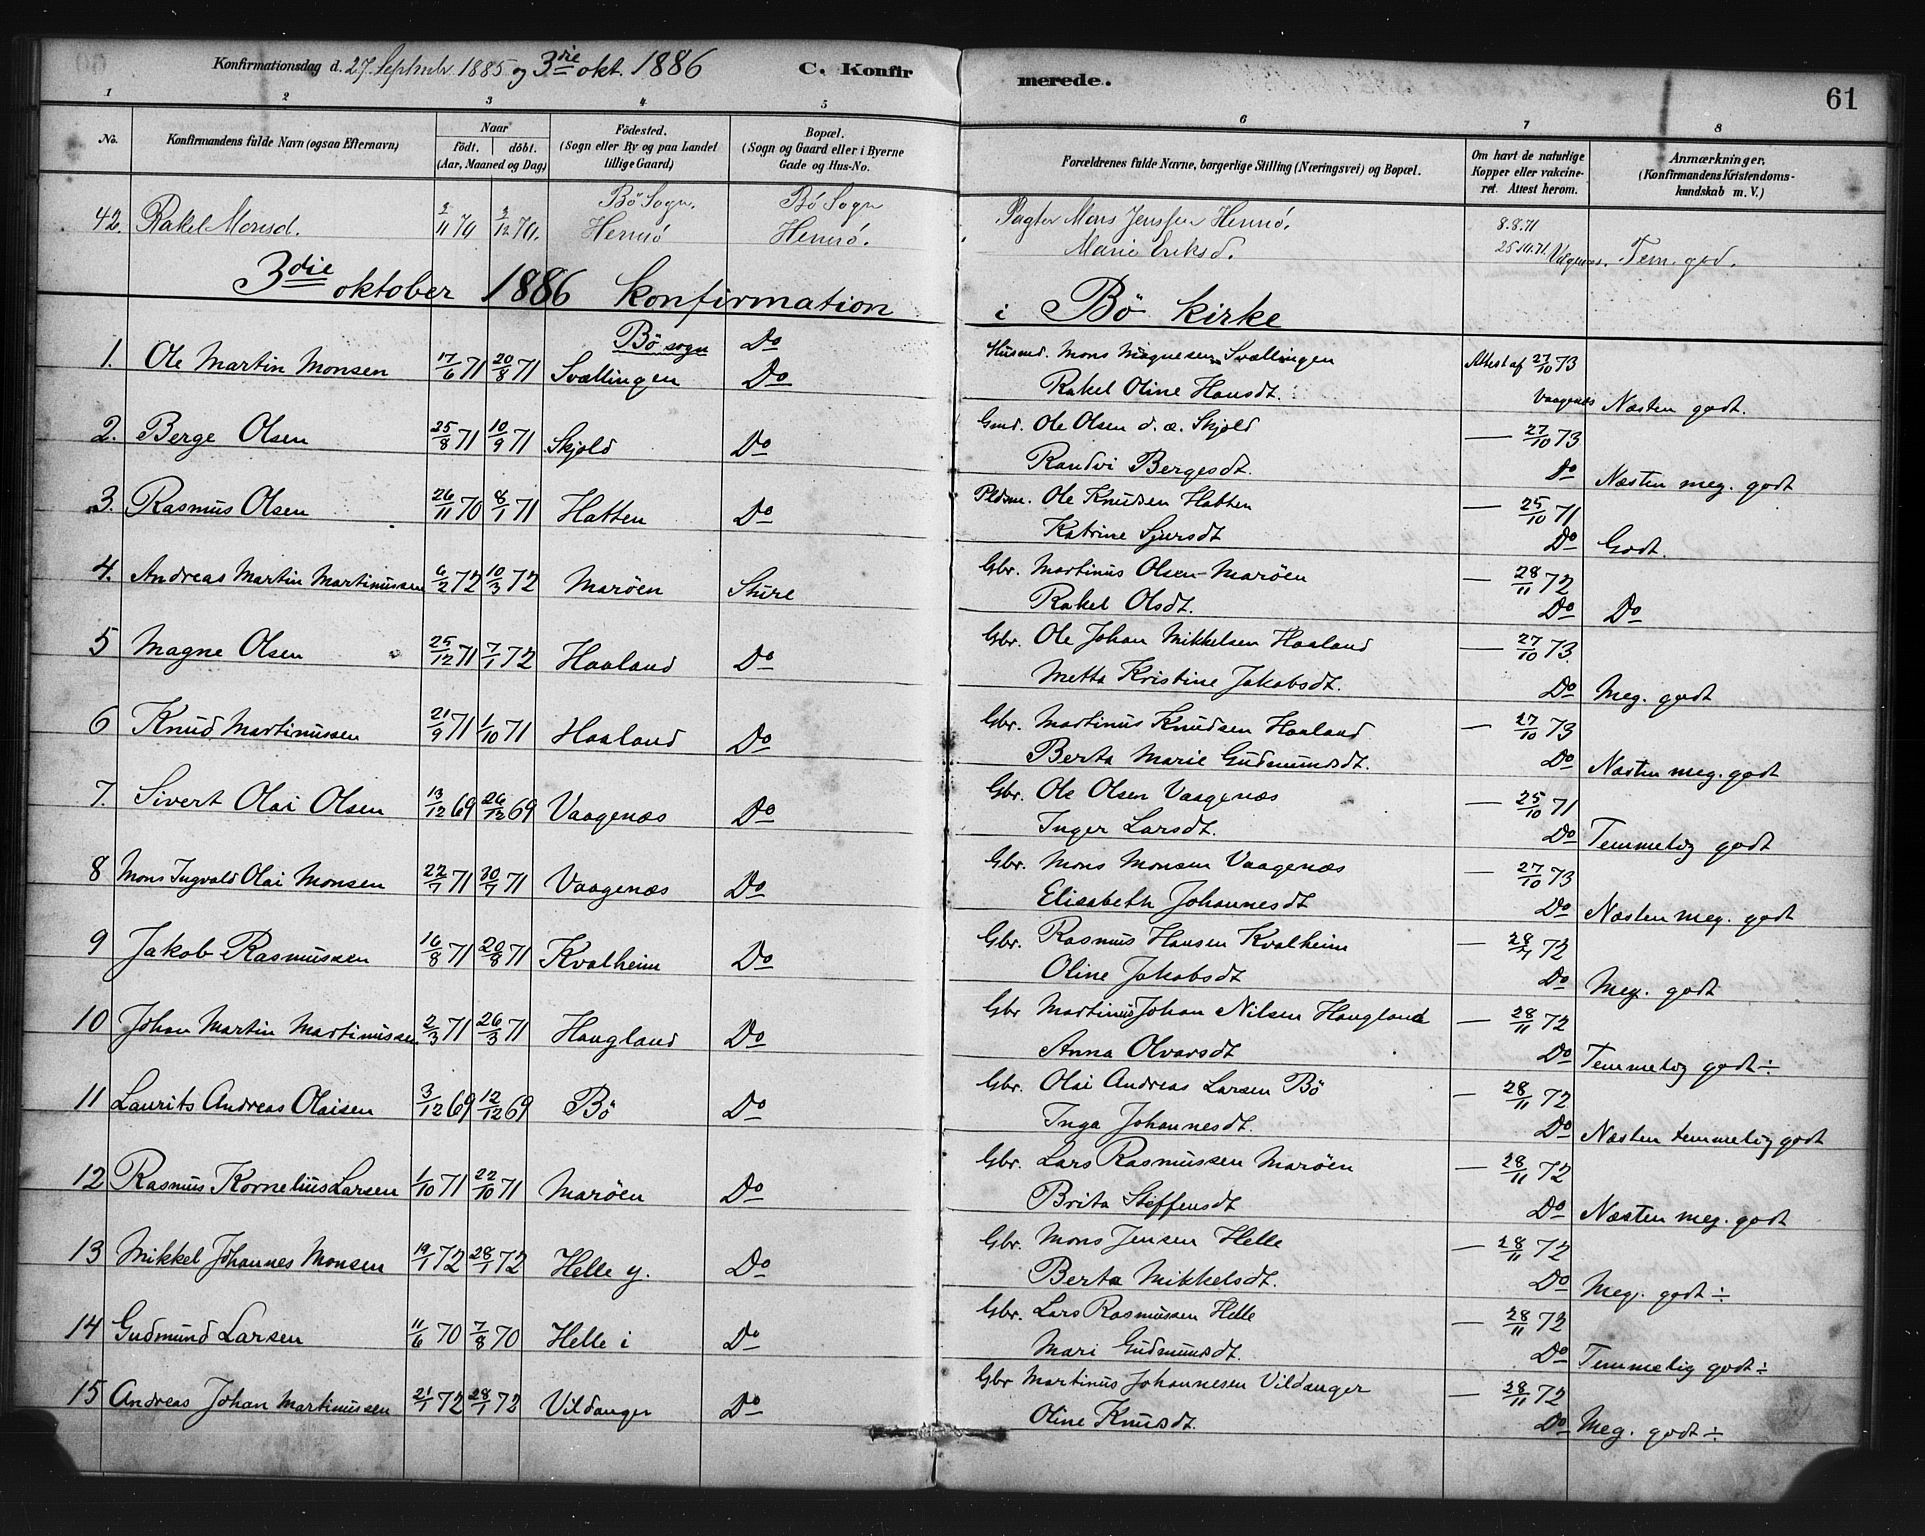 Konfirmationsdag d. 27. September 1885 og 3die okt. 1886 C. Konfirmerede. 61
1 2 3 4 5 6 7 8
No. Konfirmandens fulde Navn (ogsaa Efternavn) Naar Födt. döbt. (Aar, Maaned og Dag) Födested. (Sogn eller By og paa Landet tillige Gaard) Bopæl. (Sogn og Gaard eller i Byerne Gade og Hus-No. Forældrenes fulde Navne, borgerlige Stilling (Næringsvei) og Bopæl. Om havt de naturlige Kopper eller vakcineret. Attest herom. Anmærkninger, (Konfirmandens Kristendomskundskab m. V.)
Bö Sogn. Bö Sogn Pagter Mons Jenssen Hernö. 8.8.71
42. Rakel Monsd. 2/11 70 2/12 70. Hernö Hernö. Marie Eriksd. Tem. god.
3die oktober 1886 Konfirmation i Bö kirke
Bö sogn Do
1. Ole Martin Monsen 17/6 71 20/8 71 Svællingen Do Husmd. Mons Magnesen Svællingen Attest af 27/10 73
Rakel Oline Hansdt. Vaagenæs Næsten godt.
2. Berge Olsen 25/8 71 10/9 71 Skjold Do Gmd. Ole Olsen d. æ. Skjold — 27/10 73
Randvi Bergesdt. Do Næsten meg. godt
3. Rasmus Olsen 26/11 70 8/1 71 Hatten Do Pldsm. Ole Knudsen Hatten — 25/10 71
Katrine Sjursdt Do Godt.
4. Andreas Martin Martinussen 6/2 72 10/3 72 Maröen Sture Gbr. Martinus Olsen Maröen — 28/11 72
Rakel Olsdt. Do Do
5 Magne Olsen 25/12 71 7/1 72 Haaland Do Gbr. Ole Johan Mikkelsen Haaland — 27/10 73.
Metta Kristine Jakobsdt. Do Meg. godt
6 Knud Martinussen 21/9 71 1/10 71 Haaland Do Gbr. Martinus Knudsen Haaland — 27/10 73
Berta Marie Gudmundsdt. Do Næsten meg. godt
7. Sivert Olai Olsen 13/12 69 26/12 69 Vaagenæs Do Gbr. Ole Olsen Vaagenæs — 25/10 71
Inger Larsdt. Do Temmelig godt
8 Mons Ingvald Olai Monsen 22/7 71 30/7 71 Vaagenæs Do Gbr. Mons Monsen Vaagenæs — 27/10 73
Elisabeth Johannesdt Do Næsten meg. godt
9 Jakob Rasmussen 16/8 71 20/8 71 Kvalheim Do Gbr. Rasmus Hansen Kvalheim — 28/7 72
Oline Jakobsdt Do Meg. godt
10 Johan Martin Martinussen 2/3 71 26/3 71 Haugland Do Gbr Martinus Johan Nilsen Haugland — 28/11 72
Anna Olvarsdt Do Temmelig godt ÷
11 Laurits Andreas Olaisen 3/12 69 12/12 69 Bö Do Gbr. Olai Andreas Larsen Bö — 28/11 72
Inga Johannesdt. Do Næsten temmelig godt
12 Rasmus Kornelius Larsen 1/10 71 22/10 71 Maröen Do Gbr. Lars Rasmussen Maröen — 28/11 72
Brita Steffensdt Do Næsten meg. godt
13 Mikkel Johannes Monsen 19/1 72 28/1 72 Helle y. Do Gbr. Mons Jensen Helle — 28/11 72
Berta Mikkelsdt. Do Meg. godt ÷
14 Gudmund Larsen 11/6 70 7/8 70 Helle i Do Gbr. Lars Rasmussen Helle — 28/11 72
Mari Gudmundsdt. Do Temmelig godt ÷
15 Andreas Johan Martinussen 21/1 72 28/1 72 Vildanger Do Gbr Martinus Johannesen Vildanger — 28/11 72
Oline Knudsdt. Do Meg. godt ÷